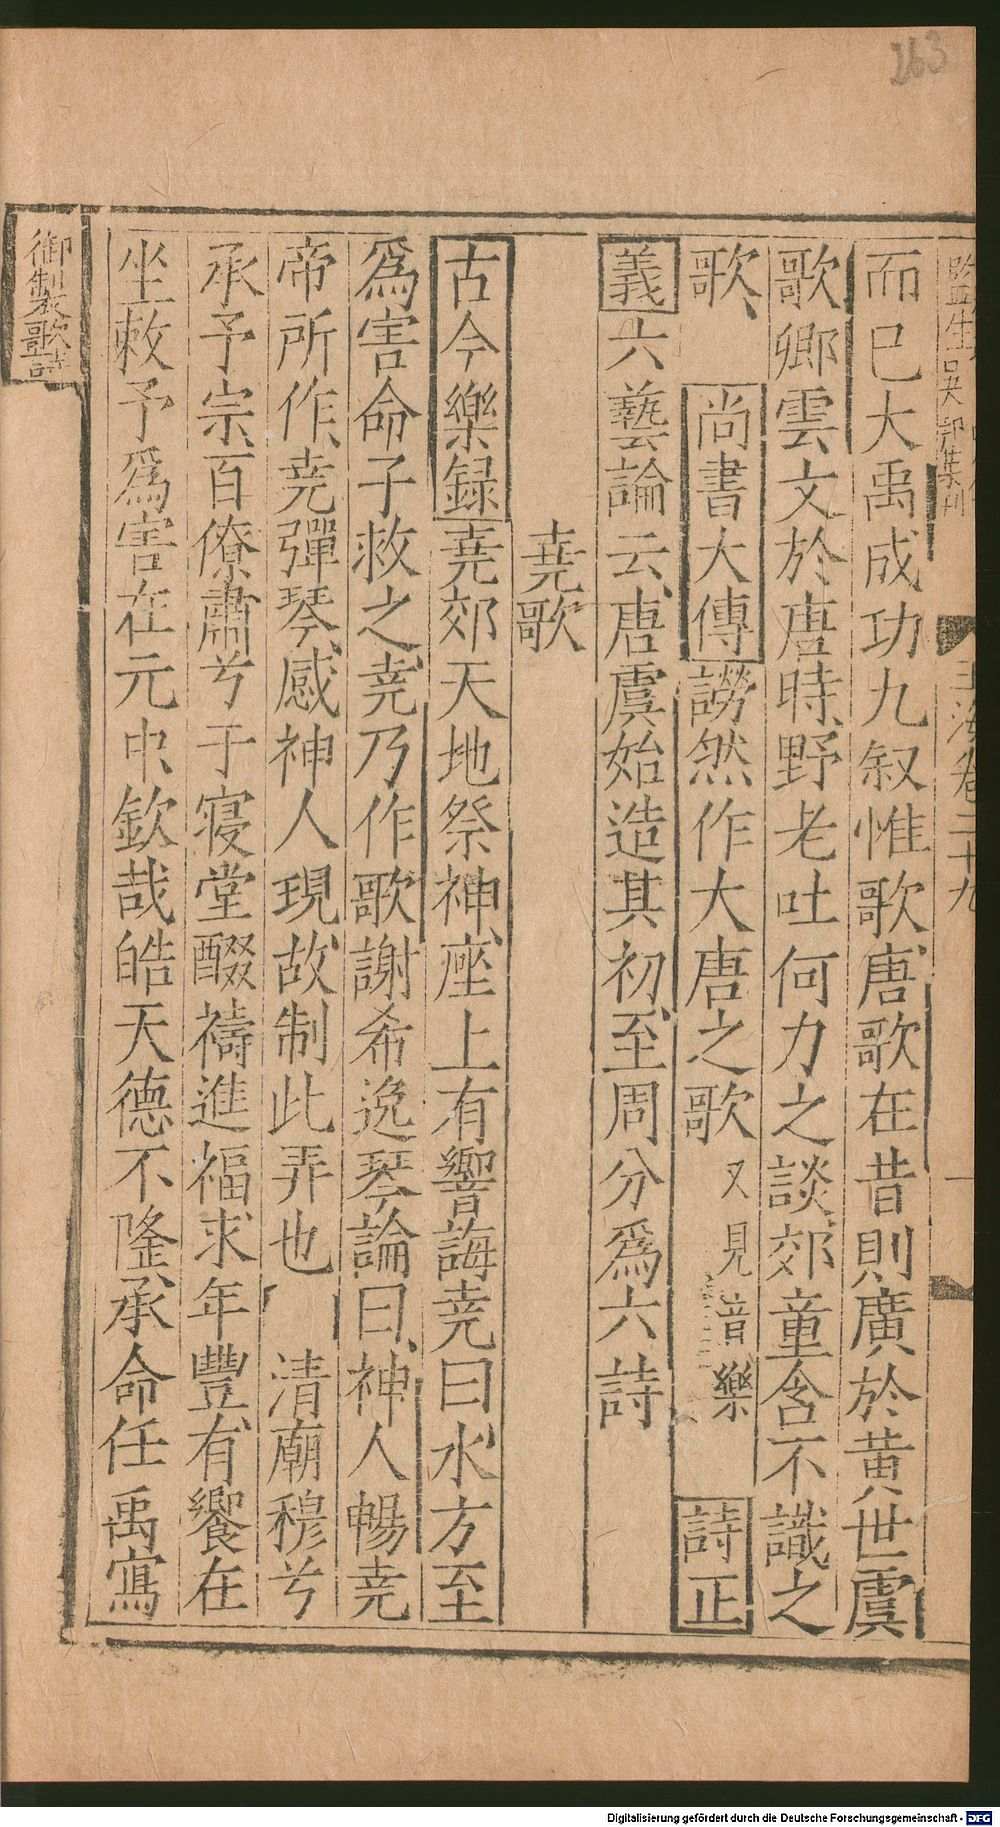 263
監生吳　　刊
玉海卷二十九　一
而已大禹成功九叙惟歌唐歌在昔則廣於黃世虞
歌卿雲文於唐時野老吐何力之談郊童含不識之
歌、　尚書大傳謗然作大唐之歌又見音樂　詩正
義六藝論云唐虞始造其初至周分爲六詩
堯歌
古今樂録堯郊天地祭神座上有響誨堯曰水方至
爲害命子救之堯乃作歌謝希逸琴論曰神人暢堯
帝所作堯彈琴感神人現故制此弄也　清廟穆兮
承予宗百僚肅兮于寑堂醊禱進福求年豐有饗在
坐敕予爲害在元中欽哉皓天德不隆承命任禹寫
御製歌詩
Digitalisierung gefördert durch die Deutsche Forschungsgemeinschaft - DFG